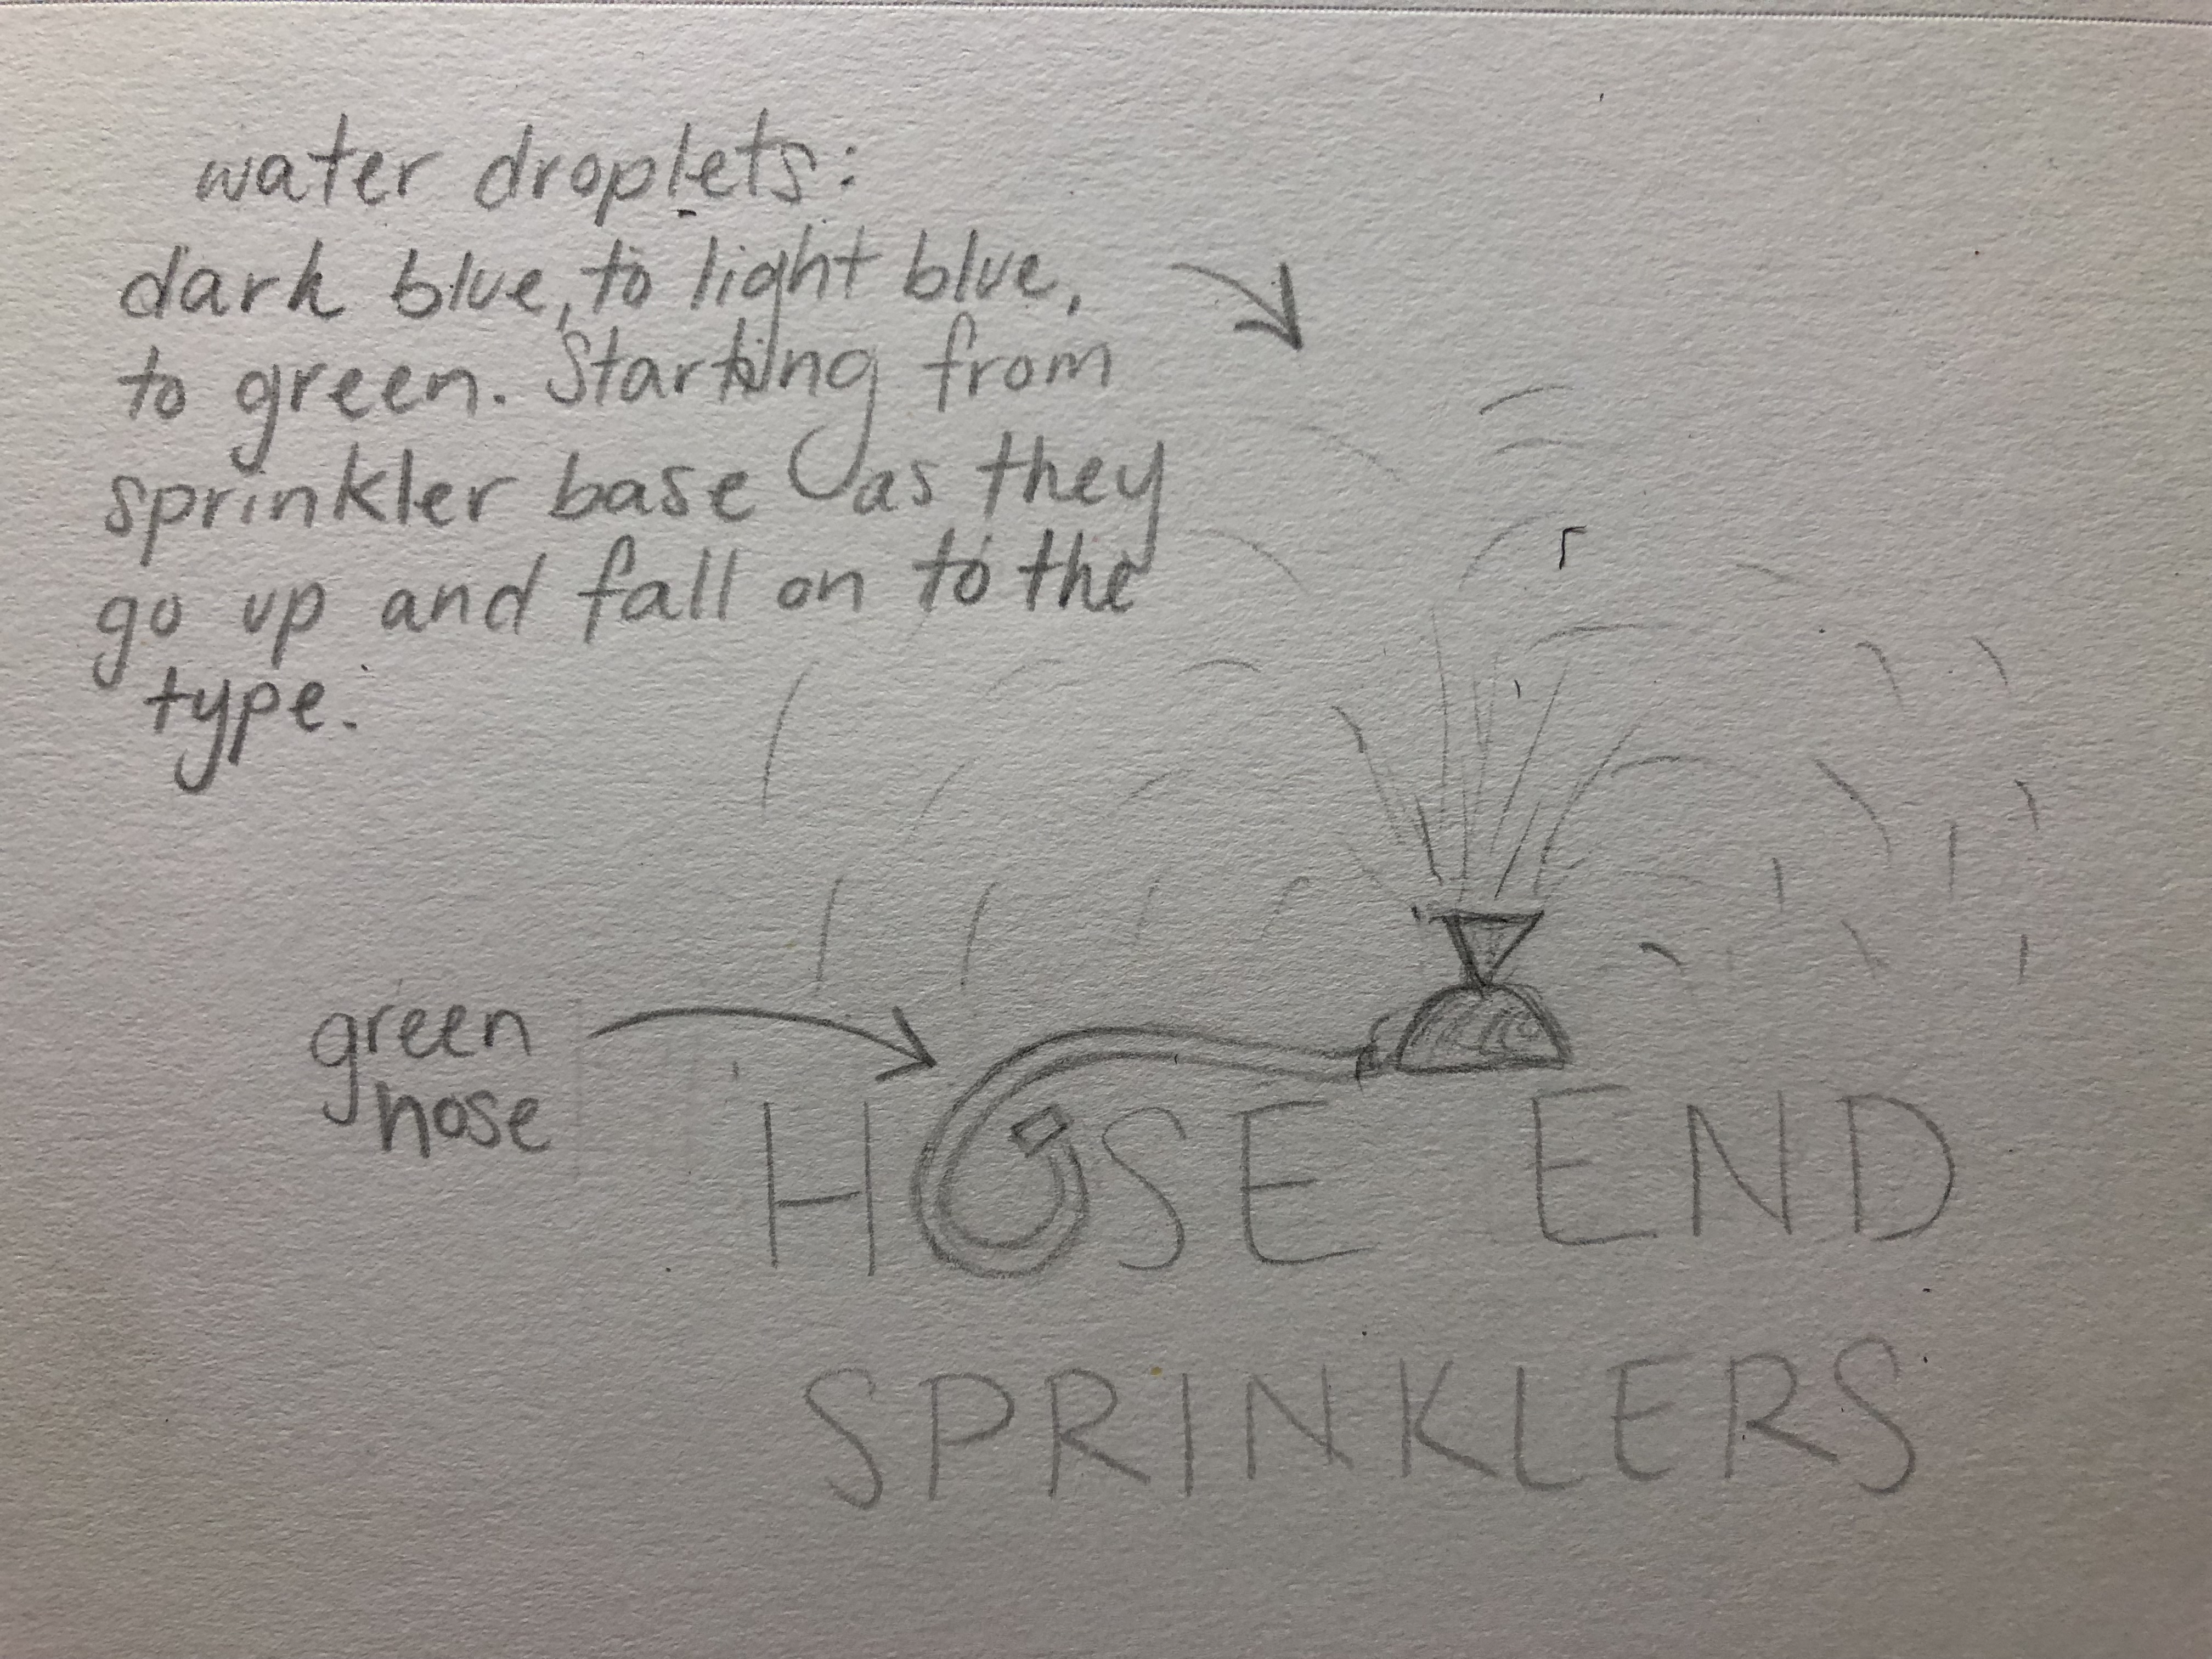 water droplets:
dark blue, to light blue,
to green. Starting from
sprinkler base as they
go up and fall on to the
type.
green
hose
HOSE END
SPRINKLERS